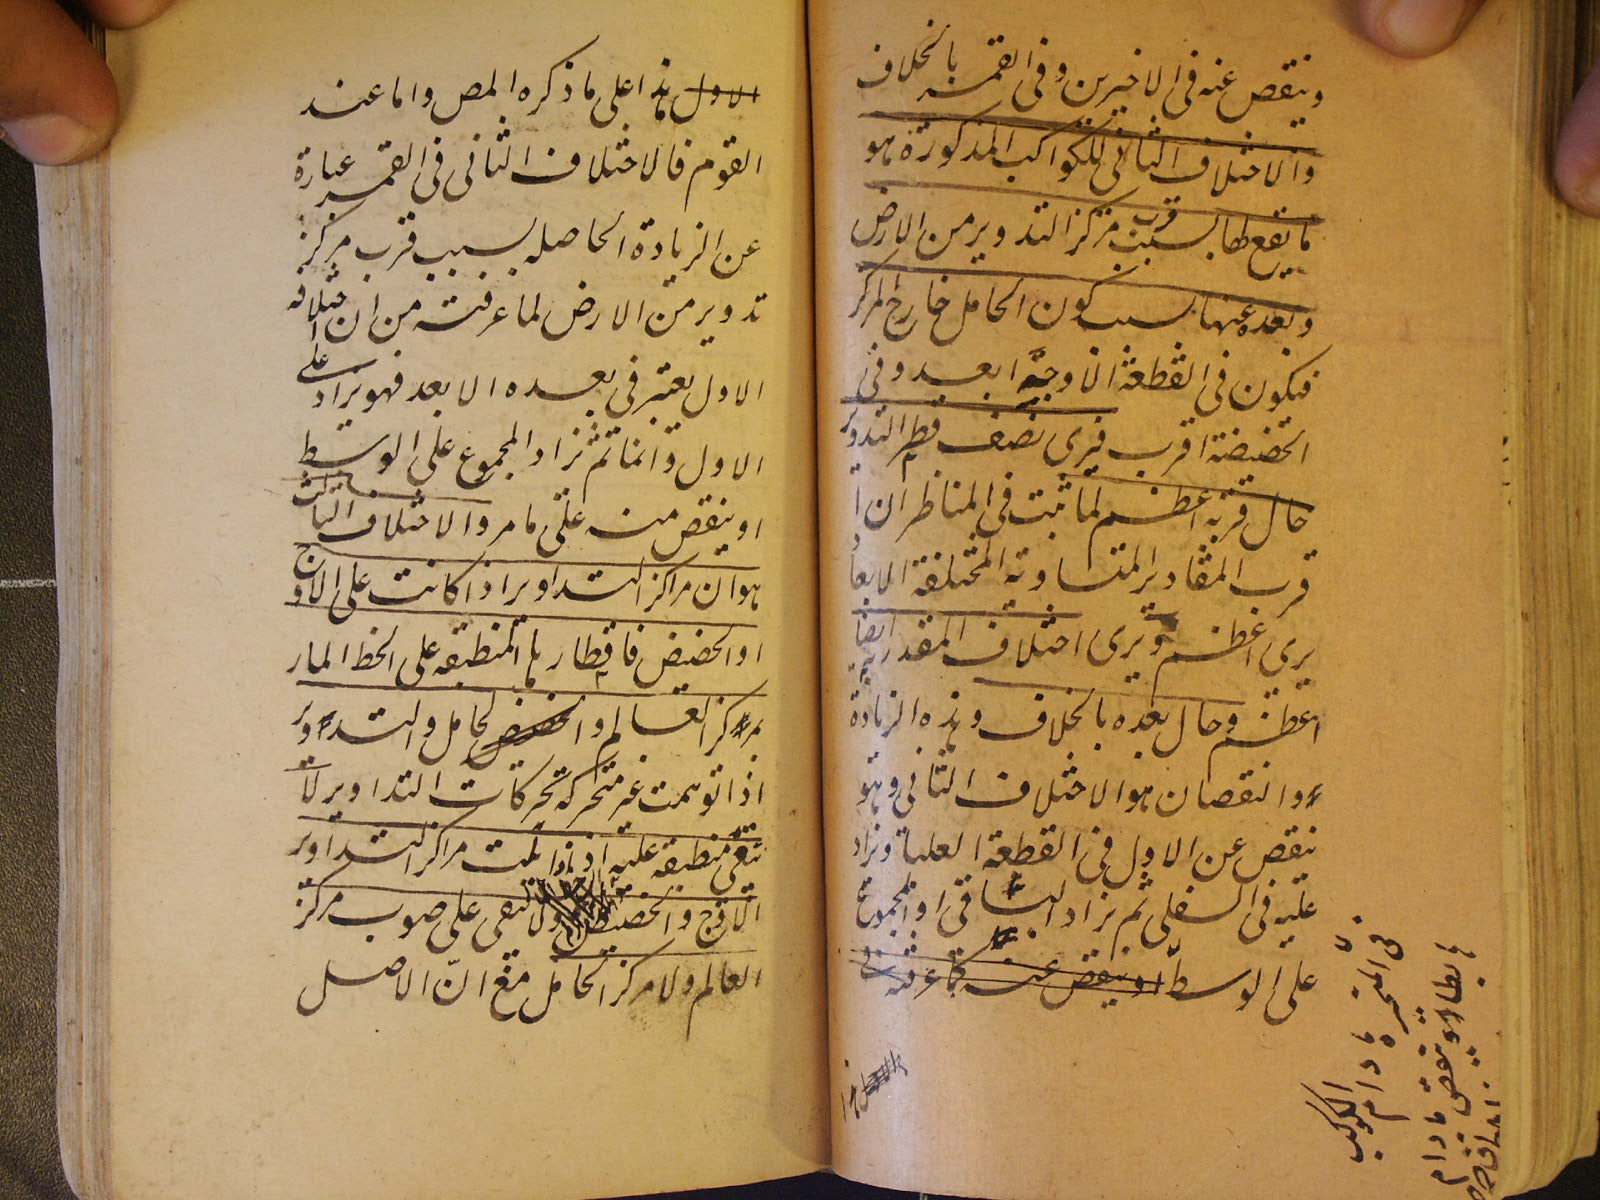 وينقص عنه في الاخيرين وفي القمر بالخلاف
والاختلاف الثاني للكواكب المذكورة هو
ما يقع لها بسبب قرب مركز التدوير من الارض
وبعده عنها بسبب كون الحامل خارج المركز
فيكون في القطعة الاوجية ابعد وفي
الحضيضية اقرب فيرى نصف قطر التدوير
حال قربه اعظم لما ثبت في المناظر ان ا
قرب المقادير المتساوية المختلفة الابعاد
يرى اعظم ويرى اختلاف المقدر ايضا به
اعظم وحال بعده بالخلاف وهذه الزيادة
والنقصان هو الاختلاف الثاني وهو
ينقص عن الاول في القطعة العليا ويزاد
عليه في السفلى ثم يزاد الباقي او المجموع
على الوسط او ينقص عنه كما عرفته في
في المتحيرة ما دام الكوكب
هابطا وينقص ما دام
الاول هذا
الاول هذا على ما ذكره المص واما عند
القوم فالاختلاف الثاني في القمر عبارة
عن الزيادة الحاصله بسبب قرب مركز
تدويره من الارض لما عرفته من ان اختلافه
الاول يعتبر في بعده الابعد فهو يزاد على
الاول دائما ثم يزاد المجموع على الوسط
او ينقص منه على ما مر والاختلاف الثالث
هو ان مراكز التداوير اذا كانت على الاوج
او الحضيض فاقطارها المنطبقه على الخط المار
بمركز العالم والحضيض الحامل والتدوير
اذا توهمت غير متحركة بحركات التداوير لا
تبقى منطبقه عليه اذا زايلت مراكز التداوير
الاوج والحضيض ولا تبقى على صوب مركز
العالم ولا مركز الحامل مع انّ الاصل